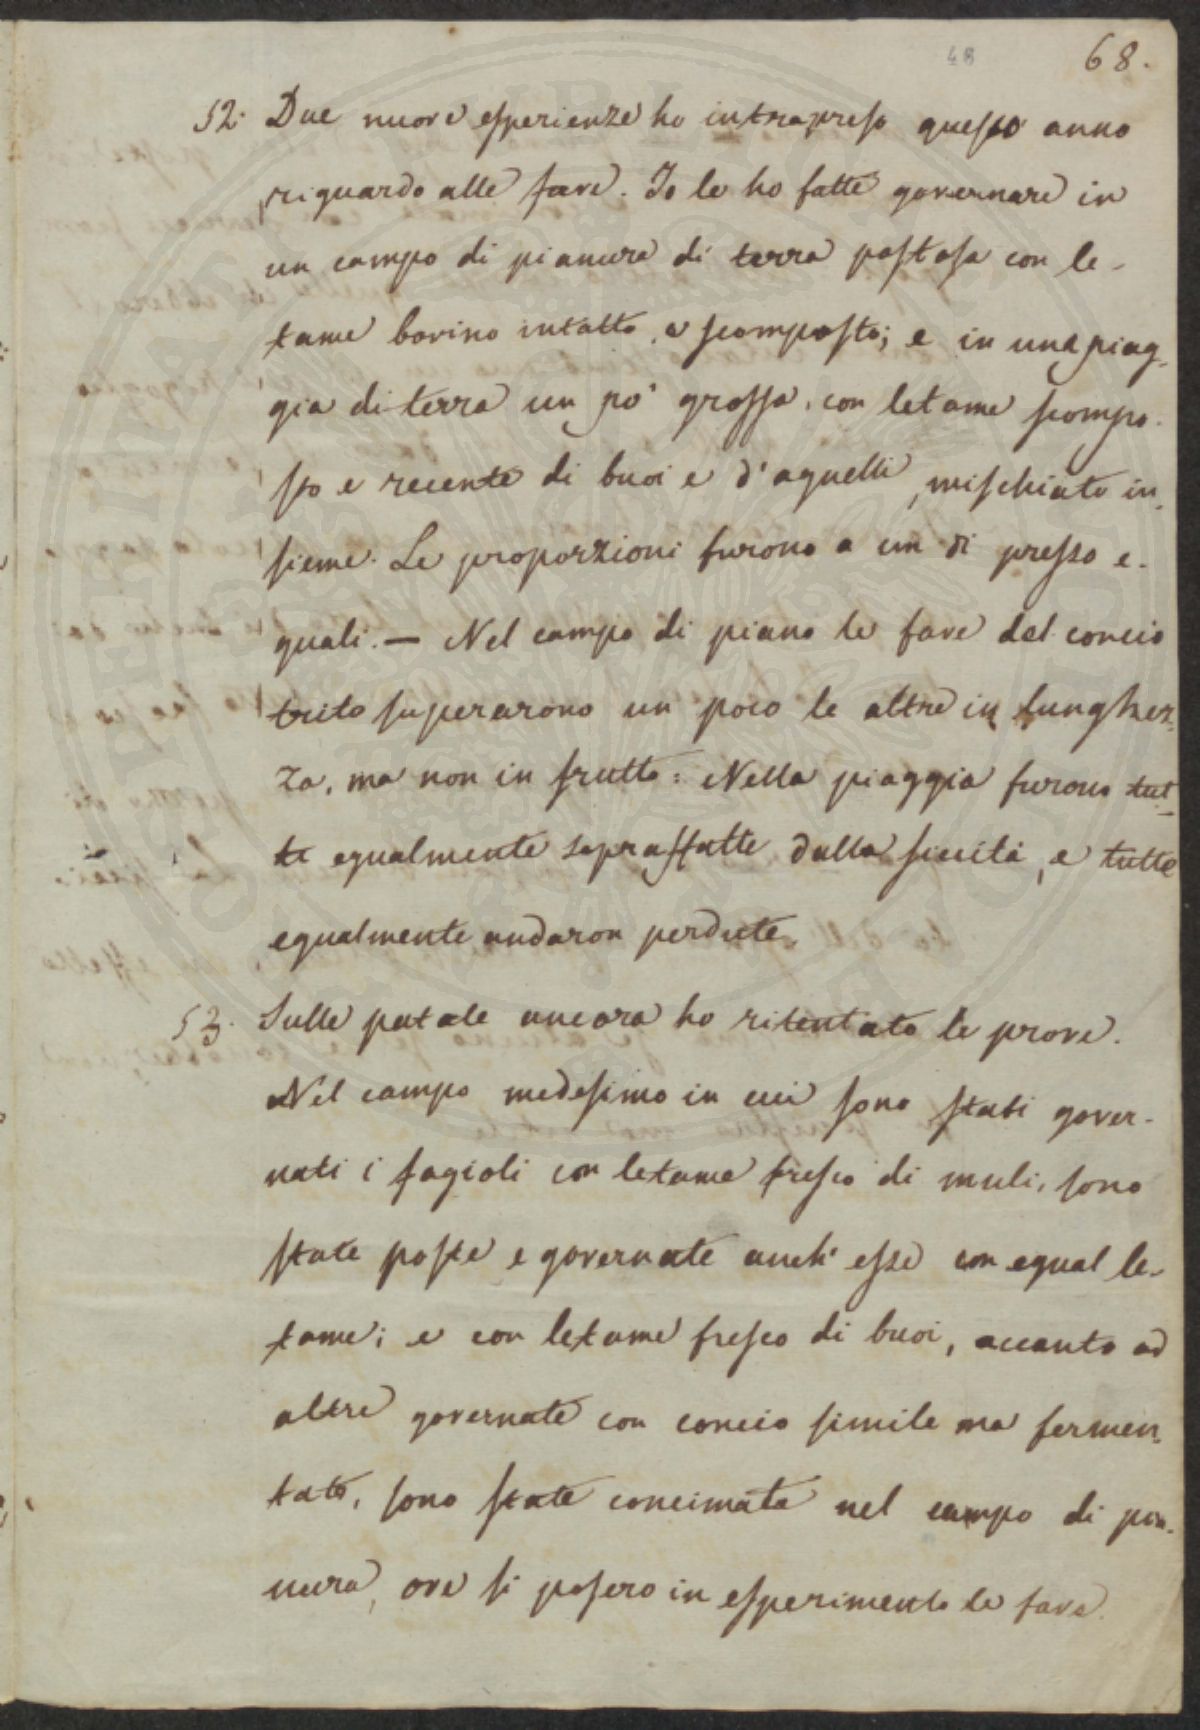 48
68.
52. Due nuove esperienze ho intrapreso questo anno
riguardo alle fave. Io le ho fatte governare in
un campo di pianura di terra pastosa con le-
tame bovino intatto, e scomposto; e in una piag-
gia di terra un po' grossa, con letame scompo-
sto e recente di buoi e d'agnelli, mischiato in-
sieme. Le proporzioni furono a un di presso e-
guali. — Nel campo di piano le fave del concio
trito superarono un poco le altre in lunghez-
za, ma non in frutto: Nella piaggia furono tut-
te egualmente sopraffatte dalla siccità, e tutte
egualmente andaron perdute.
53. Sulle patate ancora ho ritentato le prove.
Nel campo medesimo in cui sono stati gover-
nati i fagioli con letame fresco di muli, sono
state poste e governate anch' esse con egual le-
tame; e con letame fresco di buoi, accanto ad
altre governate con concio simile ma fermen-
tato, sono state concimate nel campo di pia-
nura, ove si posero in esperimento le fave.